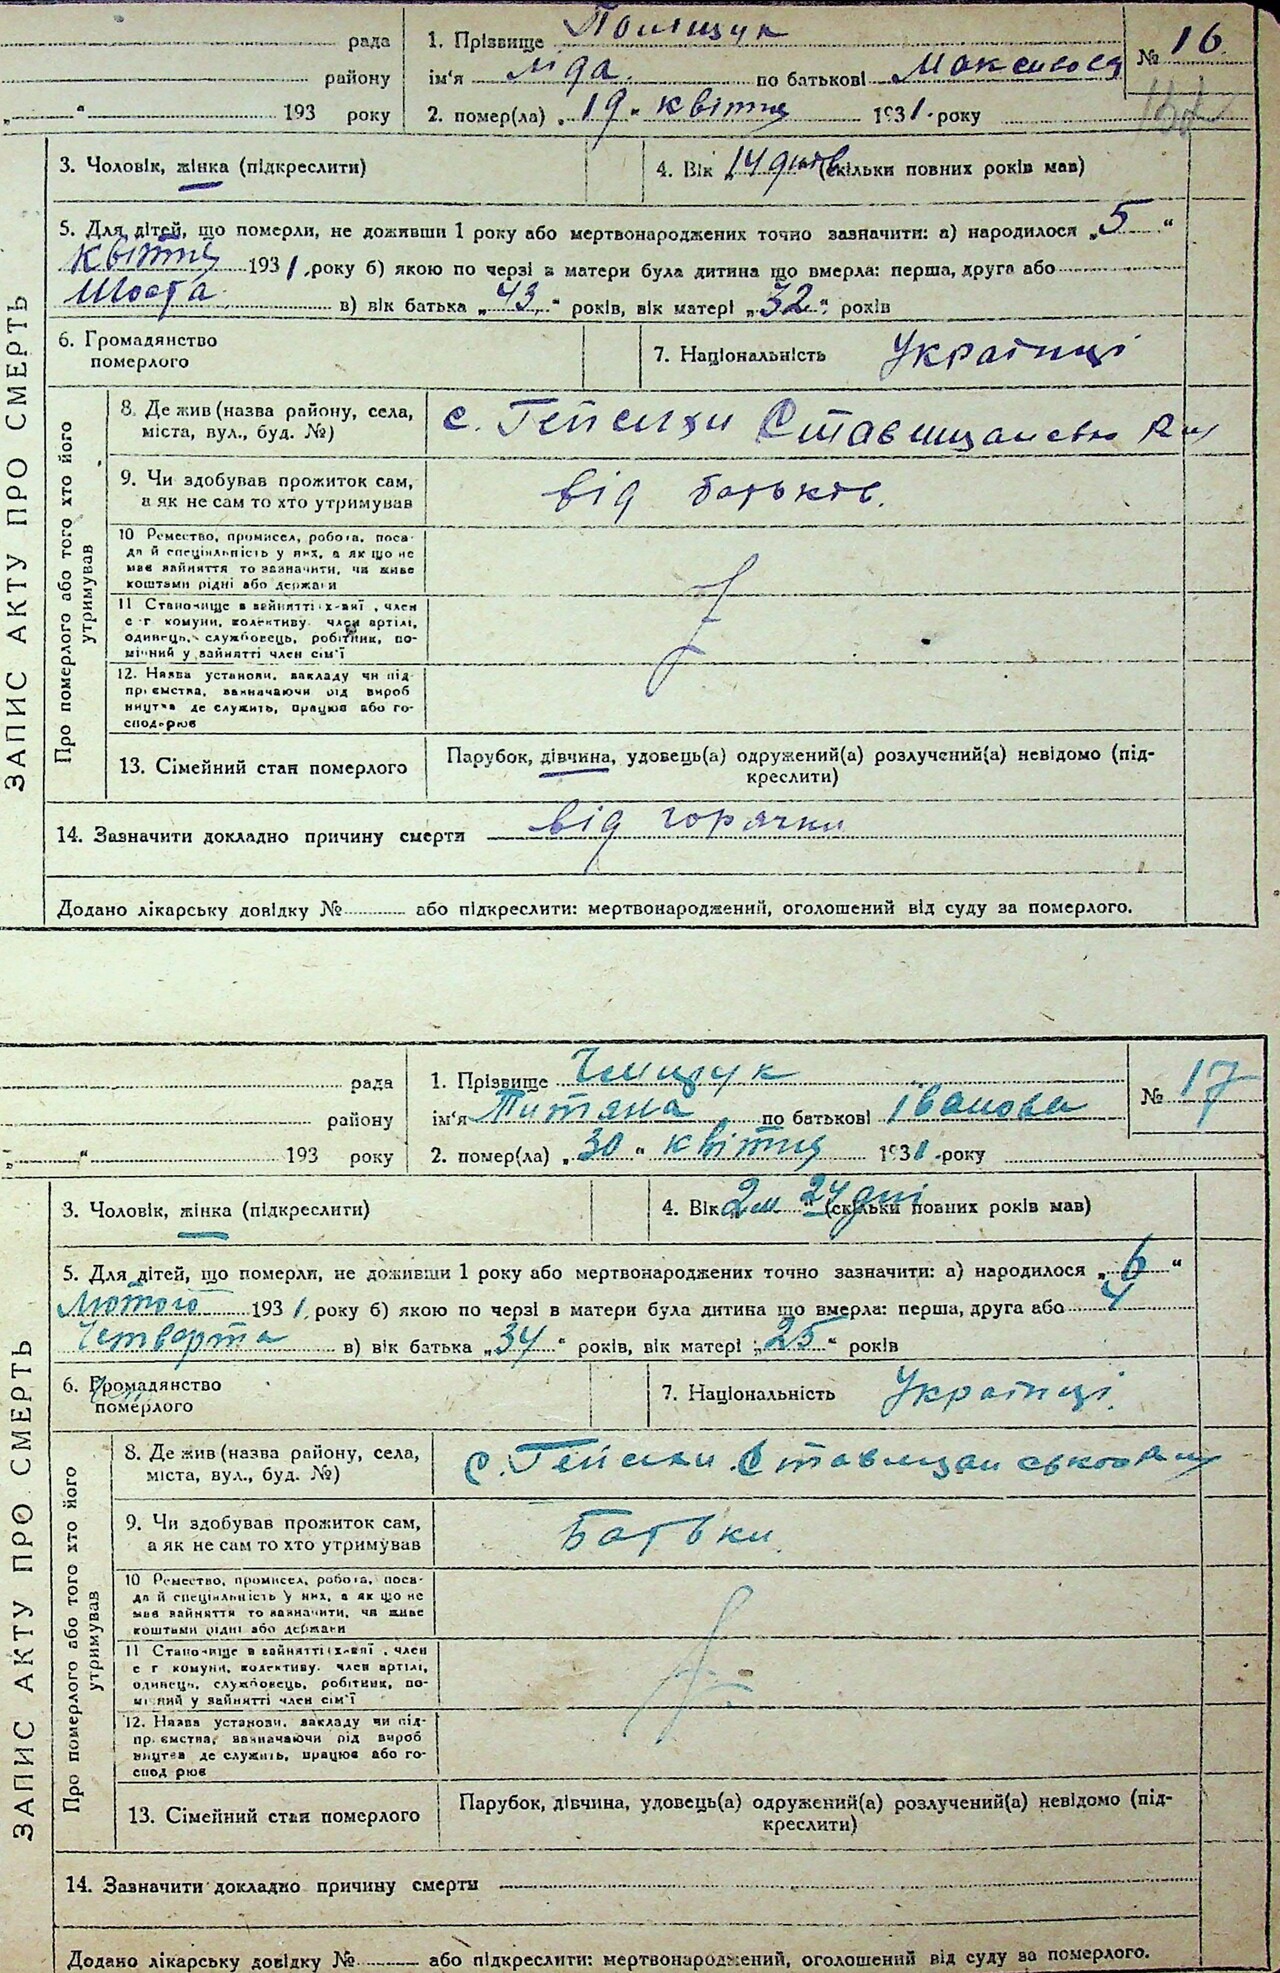 рада
району
„ “ 193 року
1. Прізвище Поліщук
ім'я Ліда по батькові
2. помер(ла) „19“ квітня 1931. року
№ 16
ЗАПИС АКТУ ПРО СМЕРТЬ
3. Чоловік, жінка (підкреслити)
4. Вік 14 днів (скільки повних років мав)
5. Для дітей, що померли, не доживши 1 року або мертвонароджених точно зазначити: а) народилося „5“
квітня 1931. року б) якою по черзі в матери була дитина що вмерла: перша, друга або
Шоста в) вік батька „43“ років, вік матері „32“ років
6. Громадянство
померлого
7. Національність Українці
Про померлого або того хто його
утримував
8. Де жив (назва району, села,
міста, вул., буд. №)
с.
9. Чи здобував прожиток сам,
а як не сам то хто утримував
від батьків.
10 Ремество, промисел, робота, поса-
да й спеціяльність у них, а як що не
має зайняття то зазначити, чи живе
коштами рідні або держави
11 Становище в зайнятті: х-ваї, член
с-г комуни, колективу. член артілі,
одинець, службовець, робітник, по-
мічний у зайнятті член сім'ї
12. Назва установи, закладу чи під-
приємства, зазначаючи рід вироб
ництва де служить, працює або го-
сподарює
13. Сімейний стан померлого
Парубок, дівчина, удовець(а) одружений(а) розлучений(а) невідомо (під-
креслити)
14. Зазначити докладно причину смерти від горячки
Додано лікарську довідку № або підкреслити: мертвонароджений, оголошений від суду за померлого.
рада
району
„ “ 193 року
1. Прізвище
ім'я Титяна по батькові Іванова
2. помер(ла) „30“ квітня 1931. року
№ 17
ЗАПИС АКТУ ПРО СМЕРТЬ
3. Чоловік, жінка (підкреслити)
4. Вік „2 м 24 дні (скільки повних років мав)
5. Для дітей, що померли, не доживши 1 року або мертвонароджених точно зазначити: а) народилося „6“
Лютого 1931. року б) якою по черзі в матери була дитина що вмерла: перша, друга або 4
Четверта в) вік батька „34“ років, вік матері „25“ років
6. Громадянство
померлого
7. Національність Українці.
Про померлого або того хто його
утримував
8. Де жив (назва району, села,
міста, вул., буд. №)
с.
9. Чи здобував прожиток сам,
а як не сам то хто утримував
Батьки.
10 Ремество, промисел, робота, поса-
да й спеціяльність у них, а як що не
має зайняття то зазначити, чи живе
коштами рідні або держави
11 Становище в зайнятті: х-ваї, член
с г комуни, колективу. член артілі,
одинець, службовець, робітник, по-
мічний у зайнятті член сім'ї
12. Назва установи, закладу чи під-
приємства, зазначаючи рід вироб
ництва де служить, працює або го-
сподарює
13. Сімейний стан померлого
Парубок, дівчина, удовець(а) одружений(а) розлучений(а) невідомо (під-
креслити)
14. Зазначити докладно причину смерти
Додано лікарську довідку № або підкреслити: мертвонароджений, оголошений від суду за померлого.